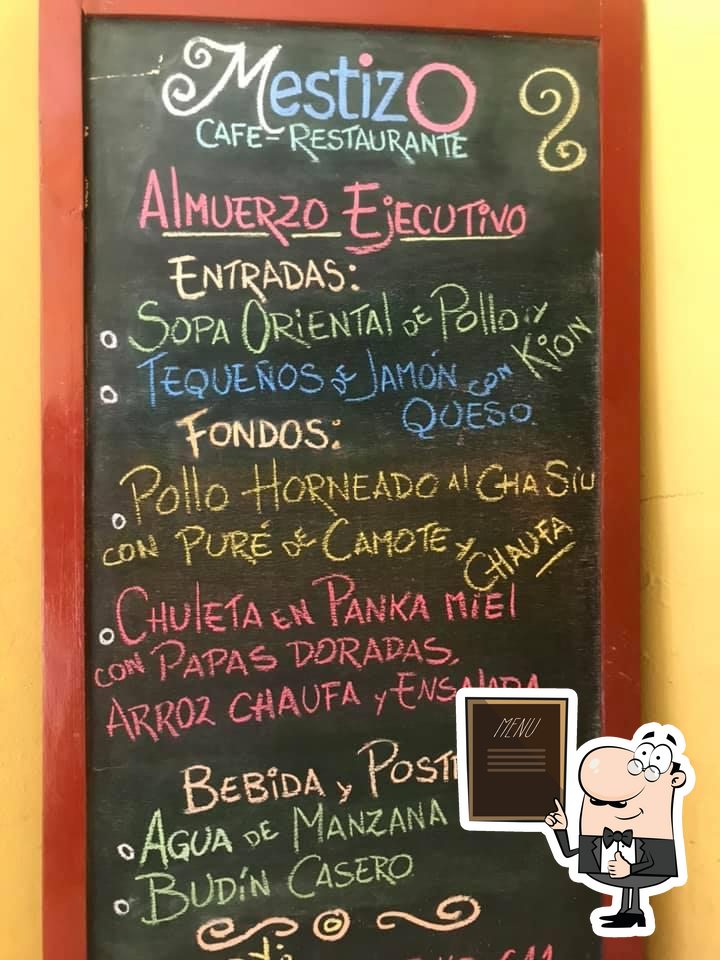 Mestizo
CAFE-RESTAURANTE
AlMUERZO EJECUTIVO
ENTRADAS:
SOPA ORIENTAL DE Pollo y KION
TEQUEÑOS DE JAMÓN CON
QUESO.
FONDOS:
Pollo HORNEADO Al CHA SiU
CON PURÉ DE CAMOTE y CHAUFA
CHULETA EN PANKA MIEL
CON PAPAS DORADAS,
ARROZ CHAUFA y ENSALADA
BEBIDA y
AGUA DE MANZANA
BUDÍN CASERO
MENU